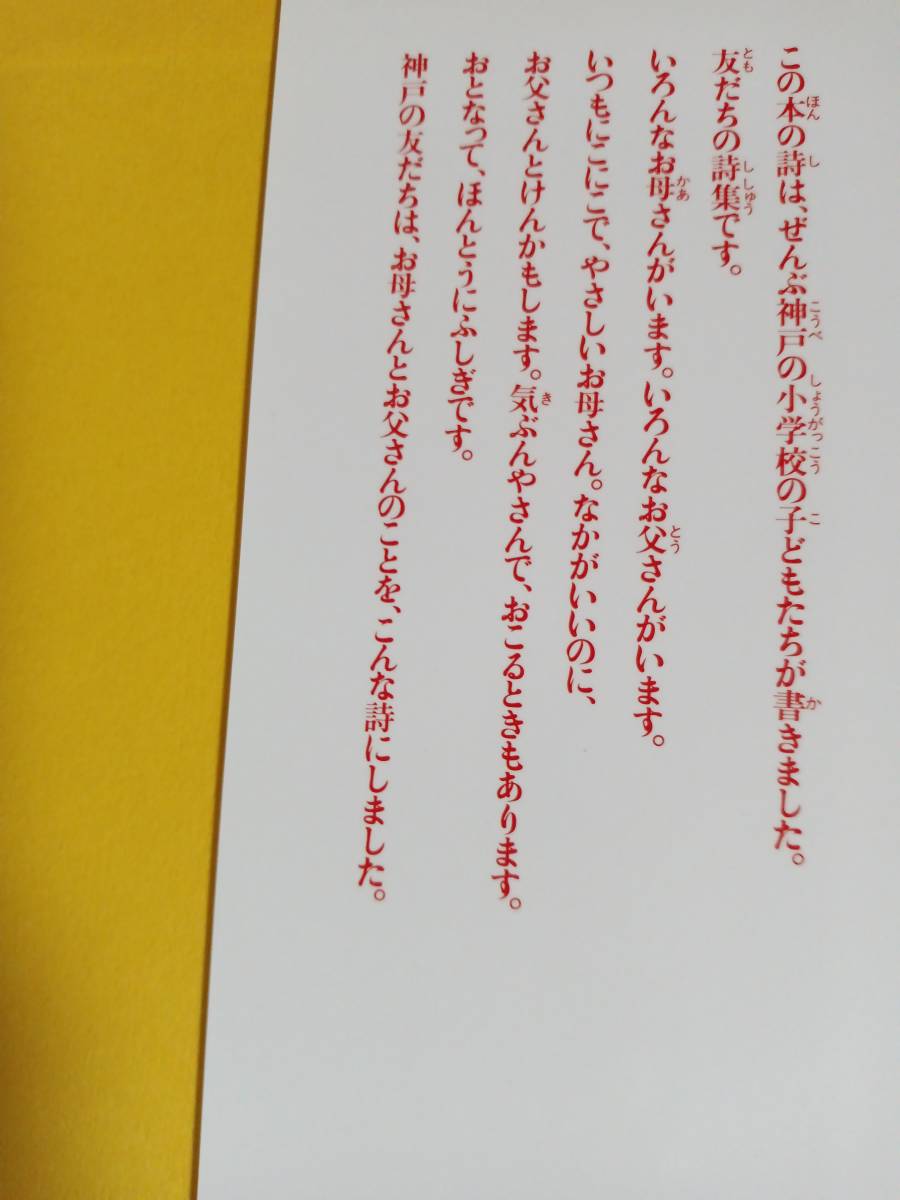 この本の詩は、ぜんぶ神戸の小学校の子どもたちが書きました。
友だちの詩集です。
いろんなお母さんがいます。いろんなお父さんがいます。
いつもにこにこで、やさしいお母さん。なかがいいのに、
お父さんとけんかもします。気ぶんやさんで、おこるときもあります。
おとなって、ほんとうにふしぎです。
神戸の友だちは、お母さんとお父さんのことを、こんな詩にしました。